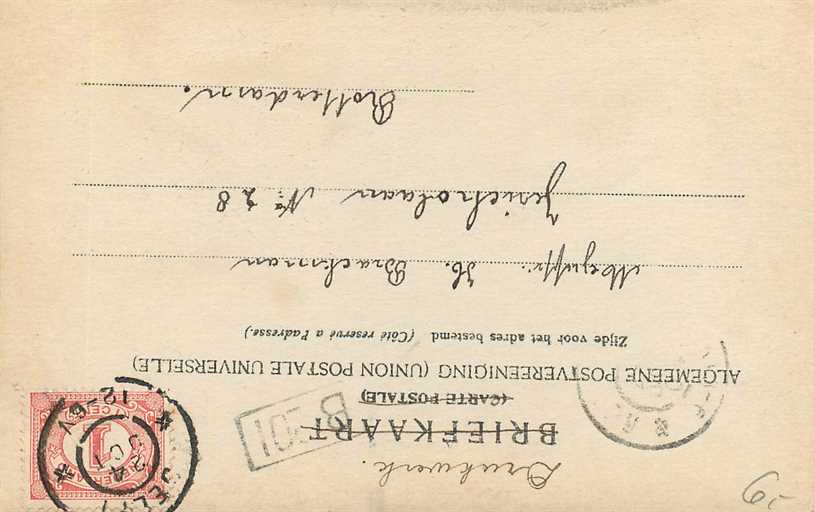 Drukwerk.
BRIEFKAART
(CARTE POSTALE)
ALGEMEENE POSTVEREENIGING (UNION POSTALE UNIVERSELLE)
Zijde voor het adres bestemd (Côté reservé a l'adresse.)
Mejuffr. H. Brackman
Jericholaan No: 28
Rotterdam.
DELFT
24
OCT
12-6V
NEDERLAND
1
CENT